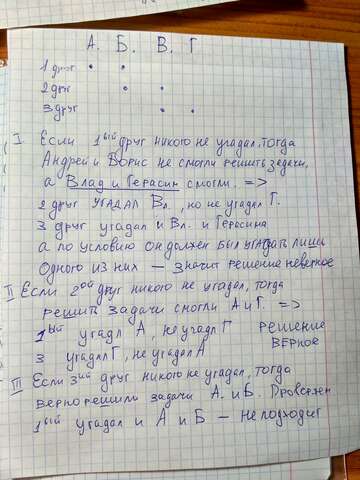 А. Б. В. Г
1 друг • •
2 друг • •
3 друг • •
I Если 1ый друг никого не угадал, тогда
Андрей и Борис не смогли решить задачи,
а Влад и Герасим смогли. =>
2 друг угадал Вл., но не угадал Г.
3 друг угадал и Вл. и Герасима
а по условию он должен был угадать лишь
одного из них — значит решение неверное
II Если 2ой друг никого не угадал, тогда
решить задачи смогли А и Г. =>
1ый угадл А, не угадл Г решение
3 угадал Г, не угадал А верное
III Если 3ий друг никого не угадал, тогда
верно решили задачи А. и Б. Проверяем
1ый угадал и А и Б — не подходит